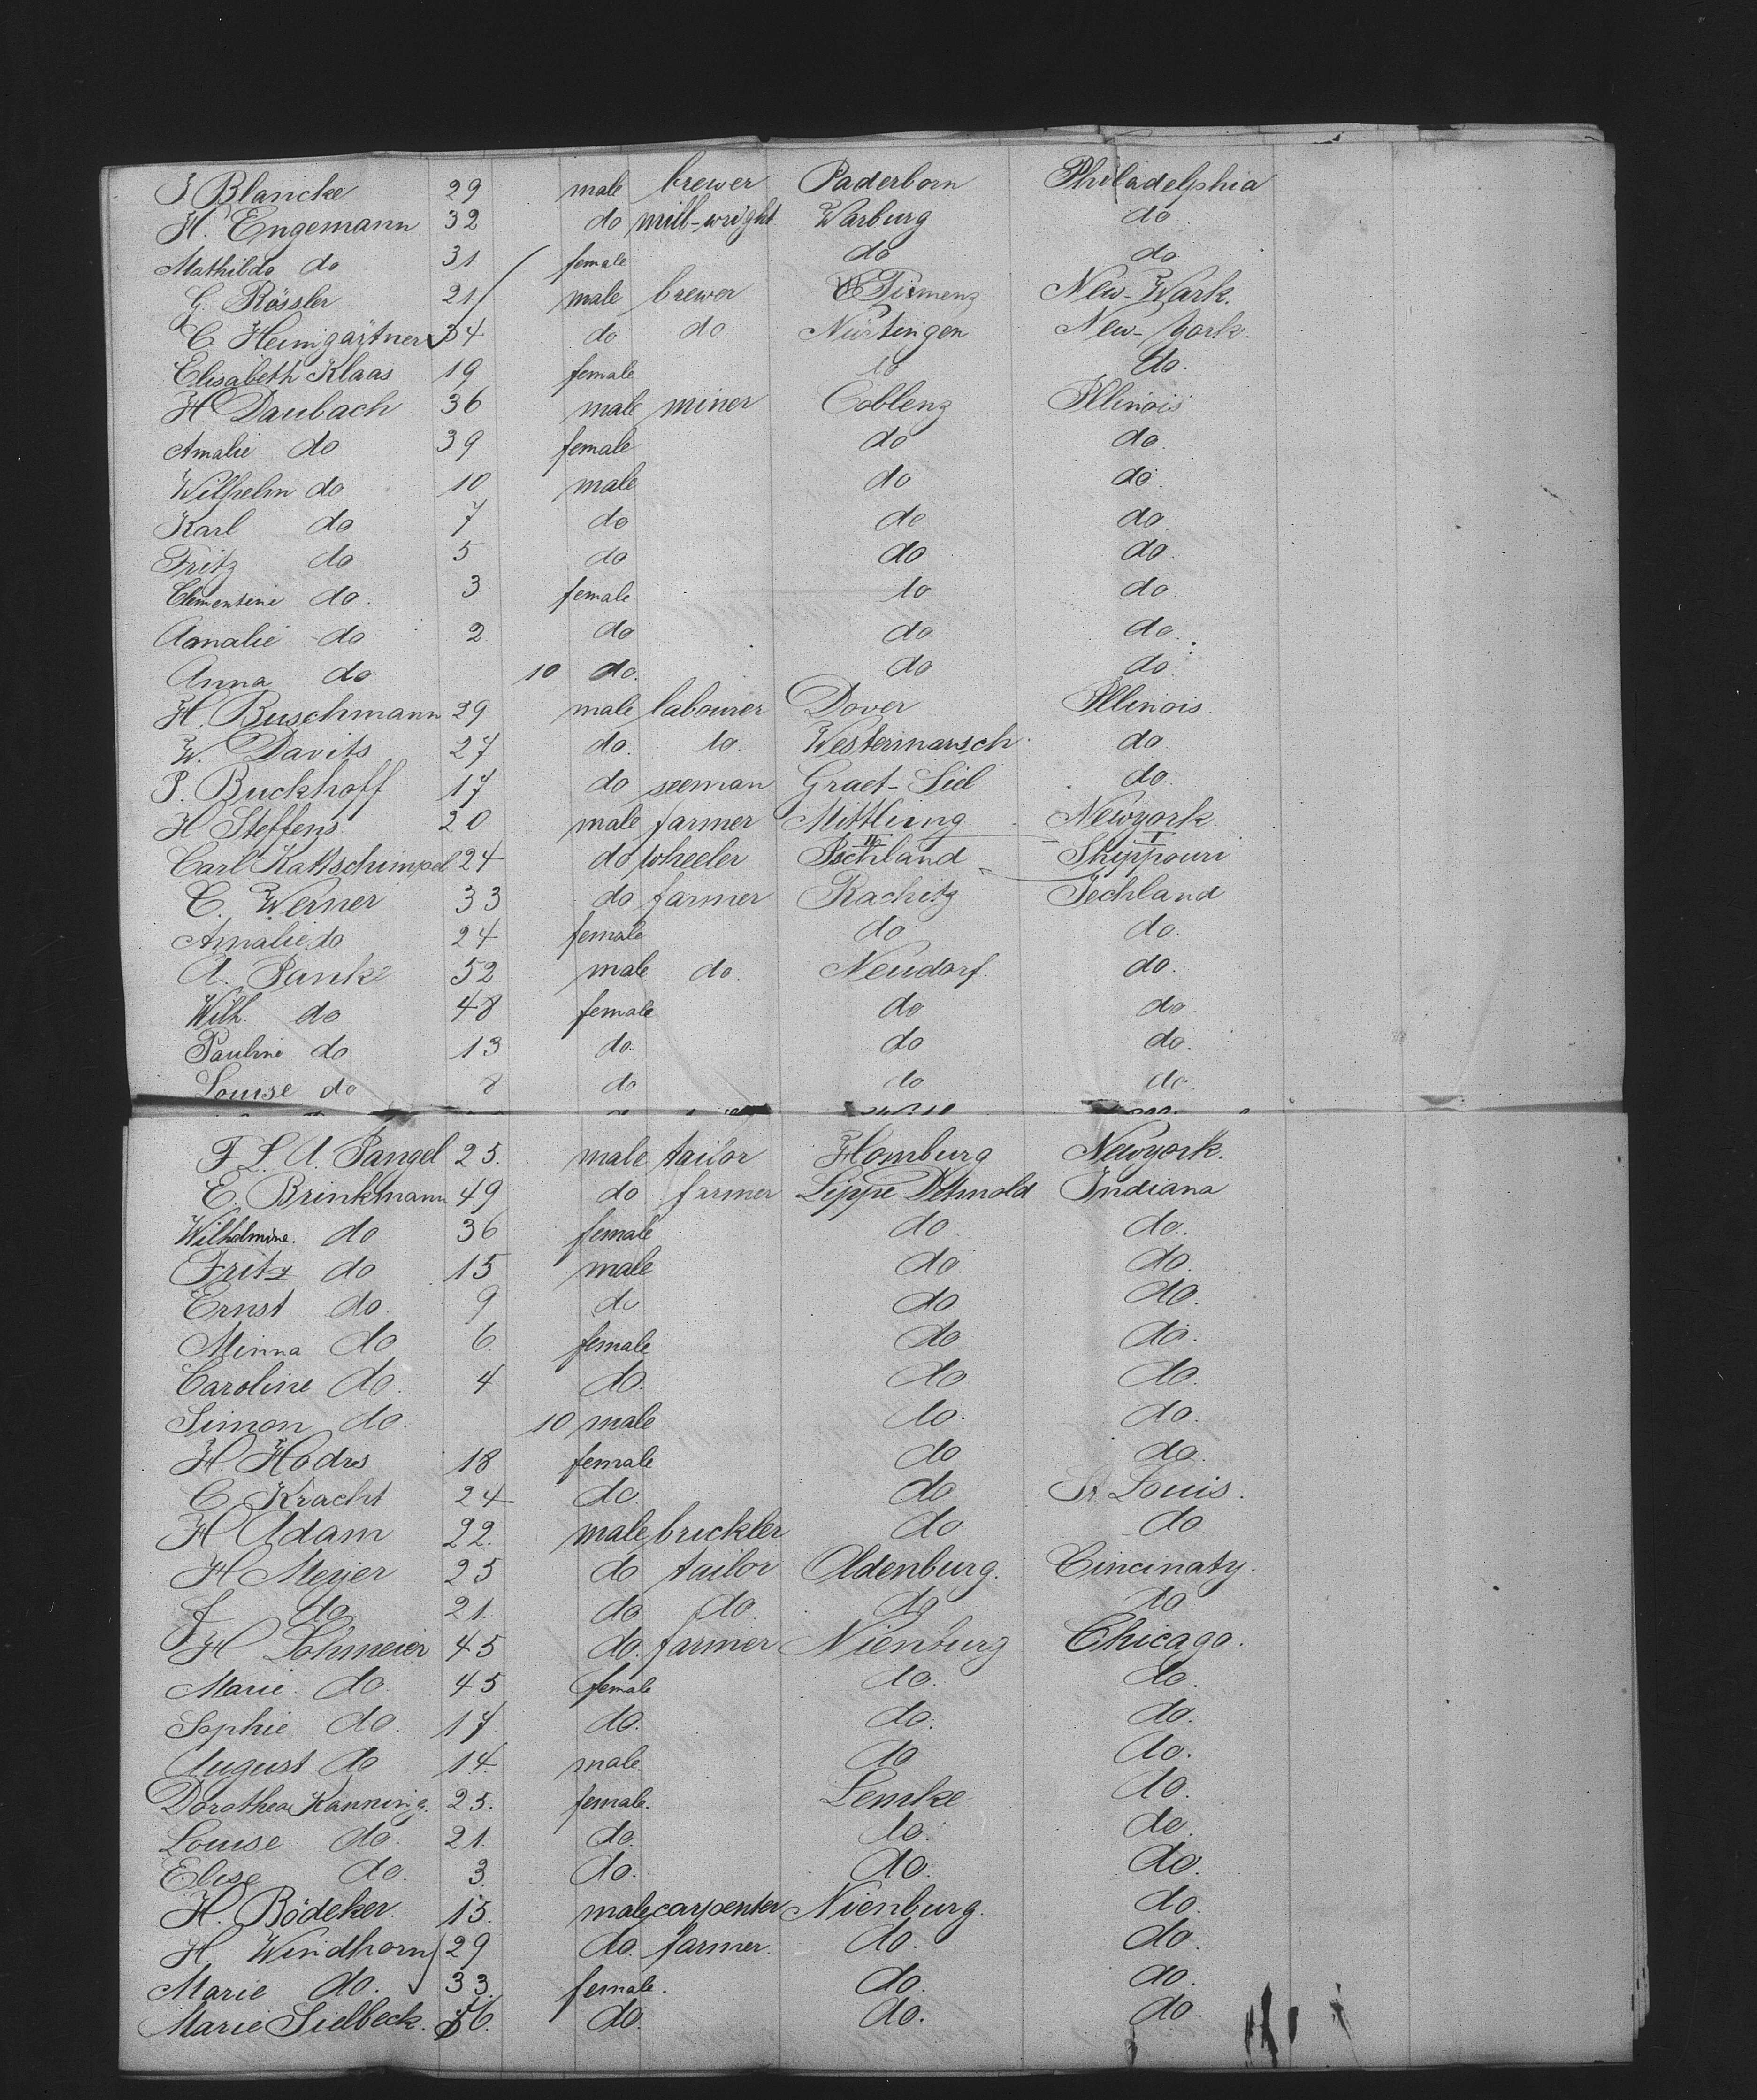 J Blancke 29 male brewer Paderborn Philadelphia
H. Engemann 32 do mill-wright Warburg do
Mathilde do 31 female do do
G. Rössler 21 male brewer New-Wark.
C Heimgärtner 34 do do Nürtingen New-York.
Elisabeth Klaas 19 female do do.
H Daubach 36 male miner Coblenz Illinois
Amalie do 39 female do do.
Wilhelm do 10 male do do.
Karl do 7 do do do.
Fritz do 5 do do do.
Clementine do. 3 female do do
Amalie do 2 do do do.
Anna do 10 do. do do
H. Buschmann 29 male labourer Dover Illinois.
W. Davits 27 do. do. Westermarsch do
P. Buckhoff 17 do seeman Graet-Siel do
H Steffens 20 male farmer Mittling Newyork.
Carl Kattschimpel 24 do wheeler II Iechland I Skippouri
C. Werner 33 do farmer Rachitz Iechland
Amalie do 24 female do do.
A. Panke 52 male do. Neudorf. do.
Wilh. do 48 female do do.
Pauline do 13 do. do do.
Louise do 8 do do do.
F. L. A. Pangel 25. male tailor Homburg Newyork.
E. Brinkmann 49 do farmer Lippe Detmold Indiana
Wilhelmine. do 36 female do. do..
Fritz do 15 male do. do.
Ernst do 9 do do do.
Minna do 6. female do do.
Caroline do. 4 do. do do.
Simon do. 10 male do. do.
H. Hodres 18 female do do.
C Kracht 24 do. do St. Louis.
H Adam 22. male brickler do do
H Meyer 25 do tailor Oldenburg. Cincinaty.
J do. 21. do do. do do
H Lohmeier 45 do. farmer Nienburg Chicago.
Marie. do. 45 female do. do.
Sophie do. 17. do. do. do.
August do 14. male. do do.
Dorothea Kanning. 25. female. Lemke do.
Louise do. 21. do. do. do.
Elise do. 3. do. do. do.
H. Bödeker. 15. male carpenter Nienburg. do.
H. Windhorn 29 do. farmer. do. do.
Marie do. 33. female. do. do.
Marie Sielbeck. 56. do. do. do.